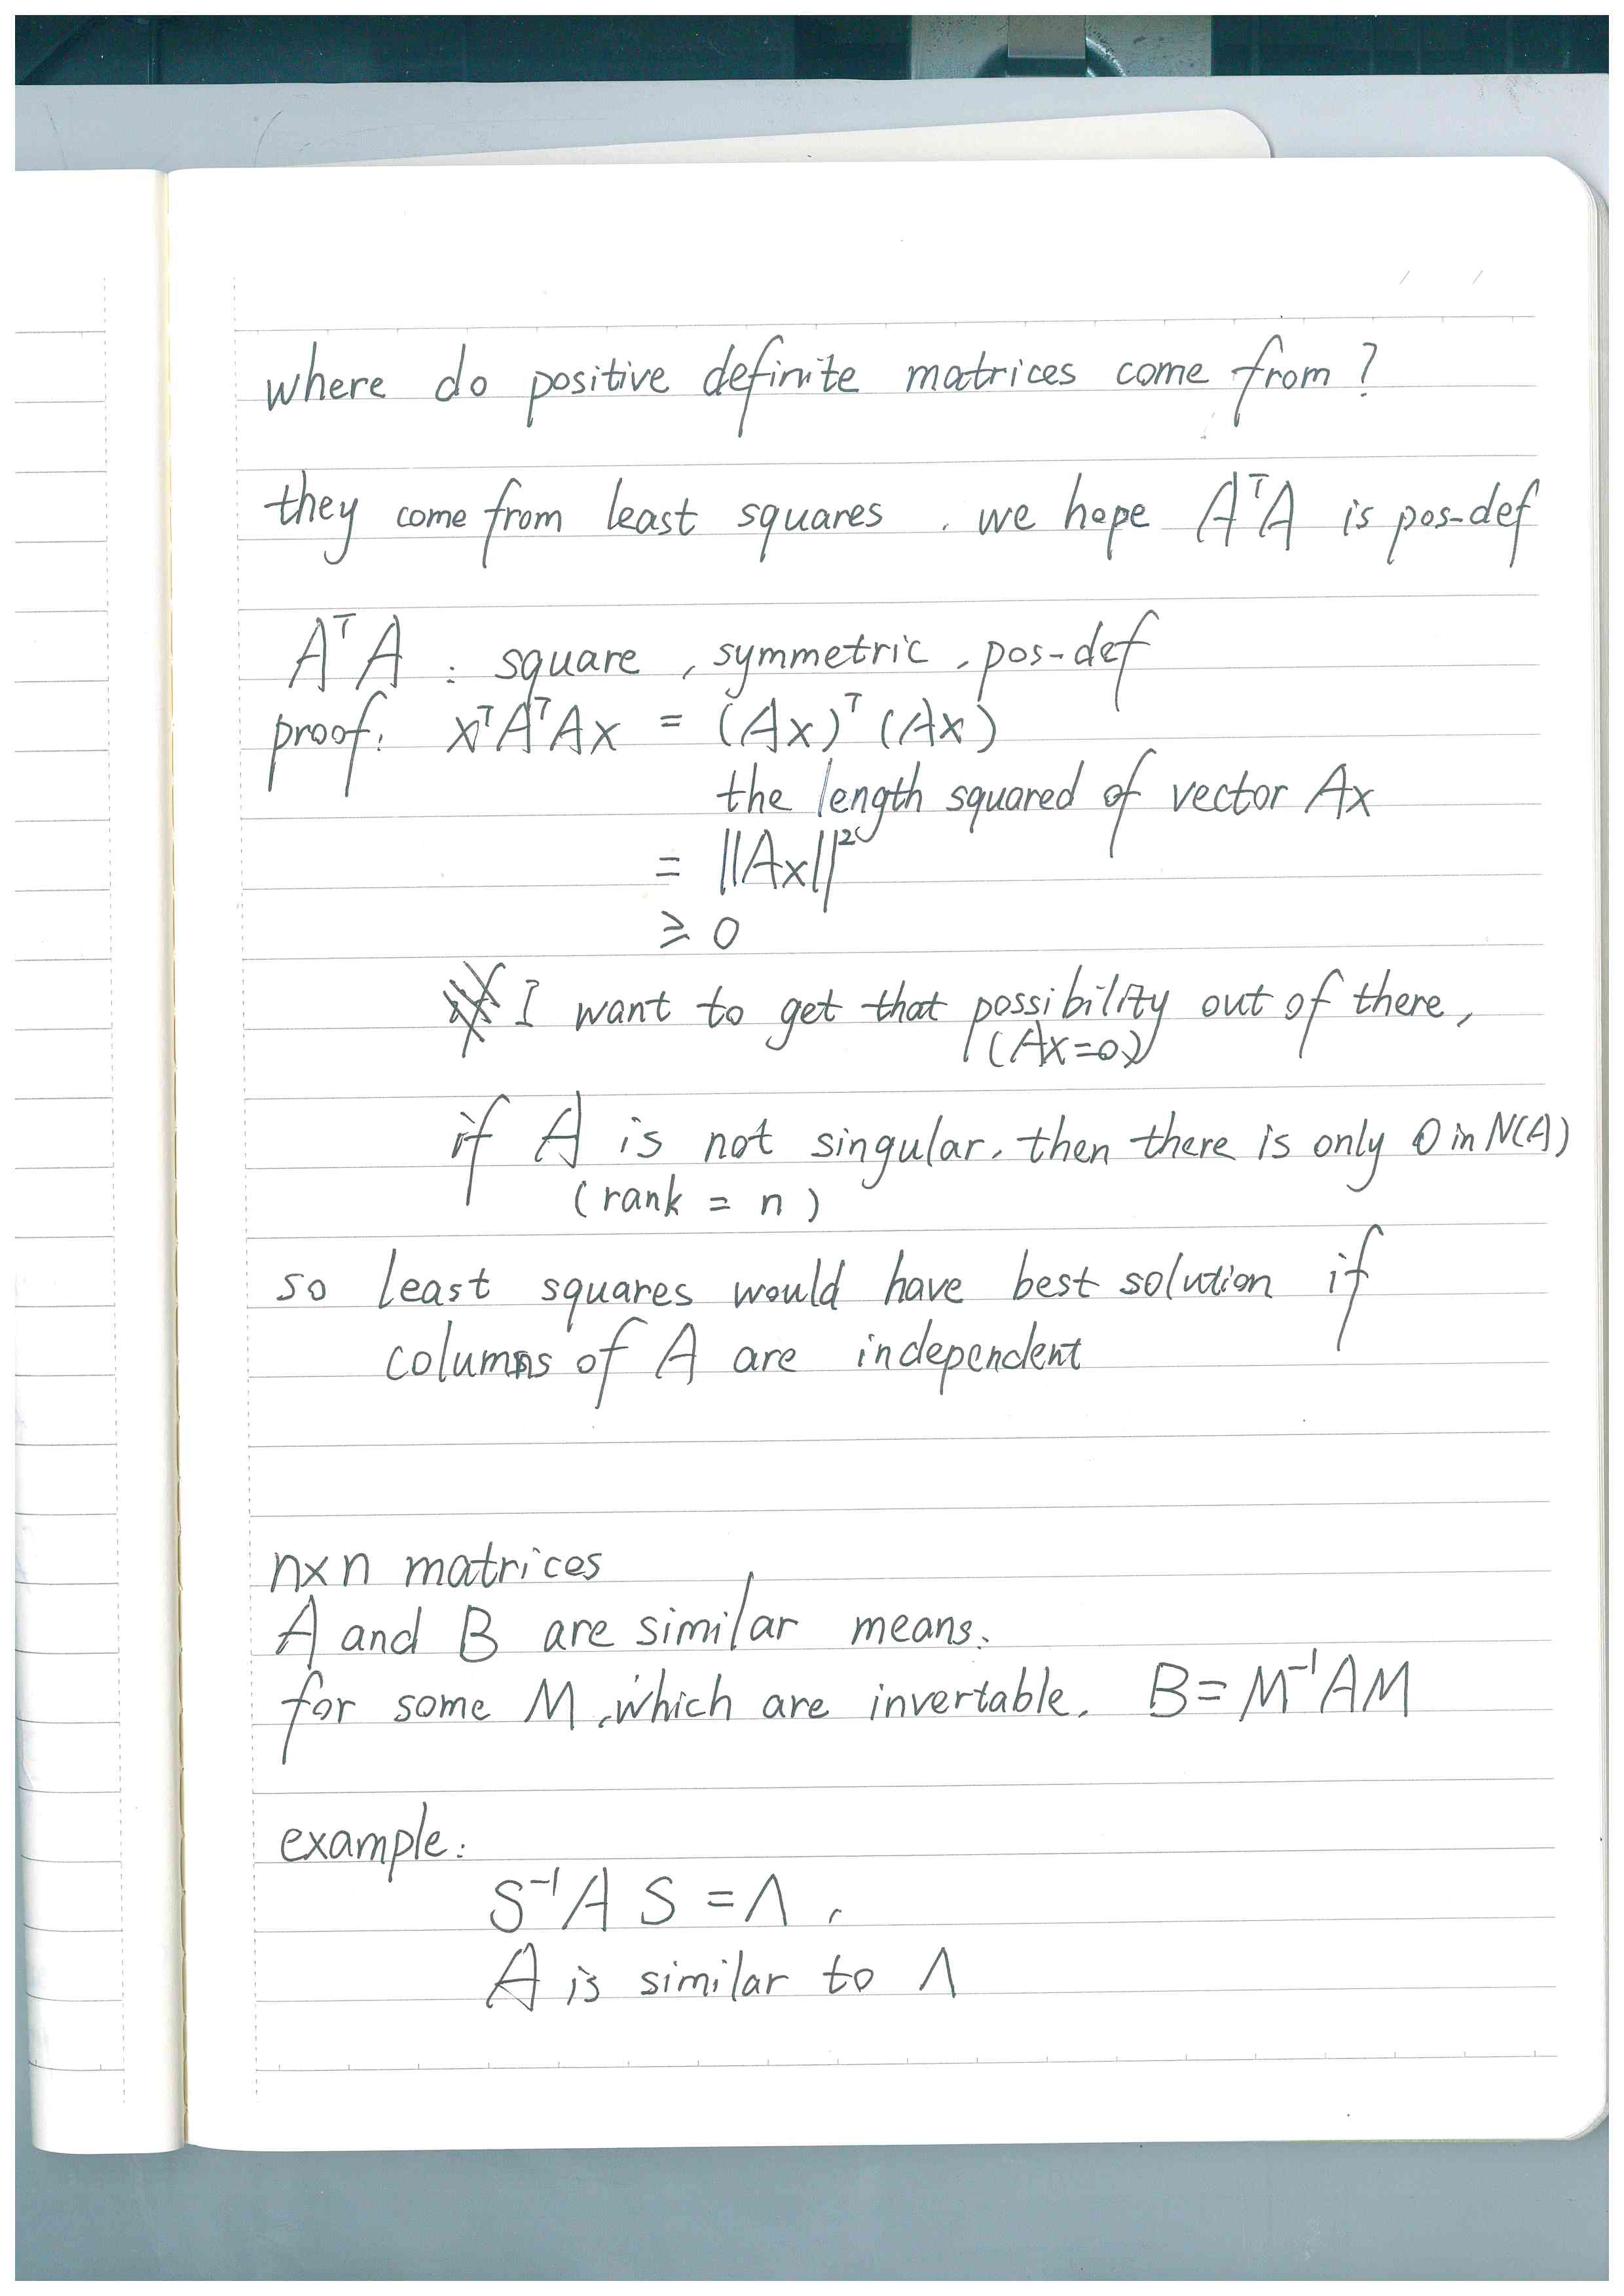 where do positive definite matrices come from?
they come from least squares. we hope AᵀA is pos-def
AᵀA: square, symmetric, pos-def
proof: xᵀAᵀAx = (Ax)ᵀ(Ax)
the length squared of vector Ax
= ||Ax||²
≥ 0
I want to get that possibility out of there,
(Ax=0)
if A is not singular, then there is only 0 in N(A)
(rank = n)
so least squares would have best solution if
columns of A are independent
n×n matrices
A and B are similar means:
for some M, which are invertable, B=M⁻¹AM
example:
S⁻¹AS=Λ,
A is similar to Λ